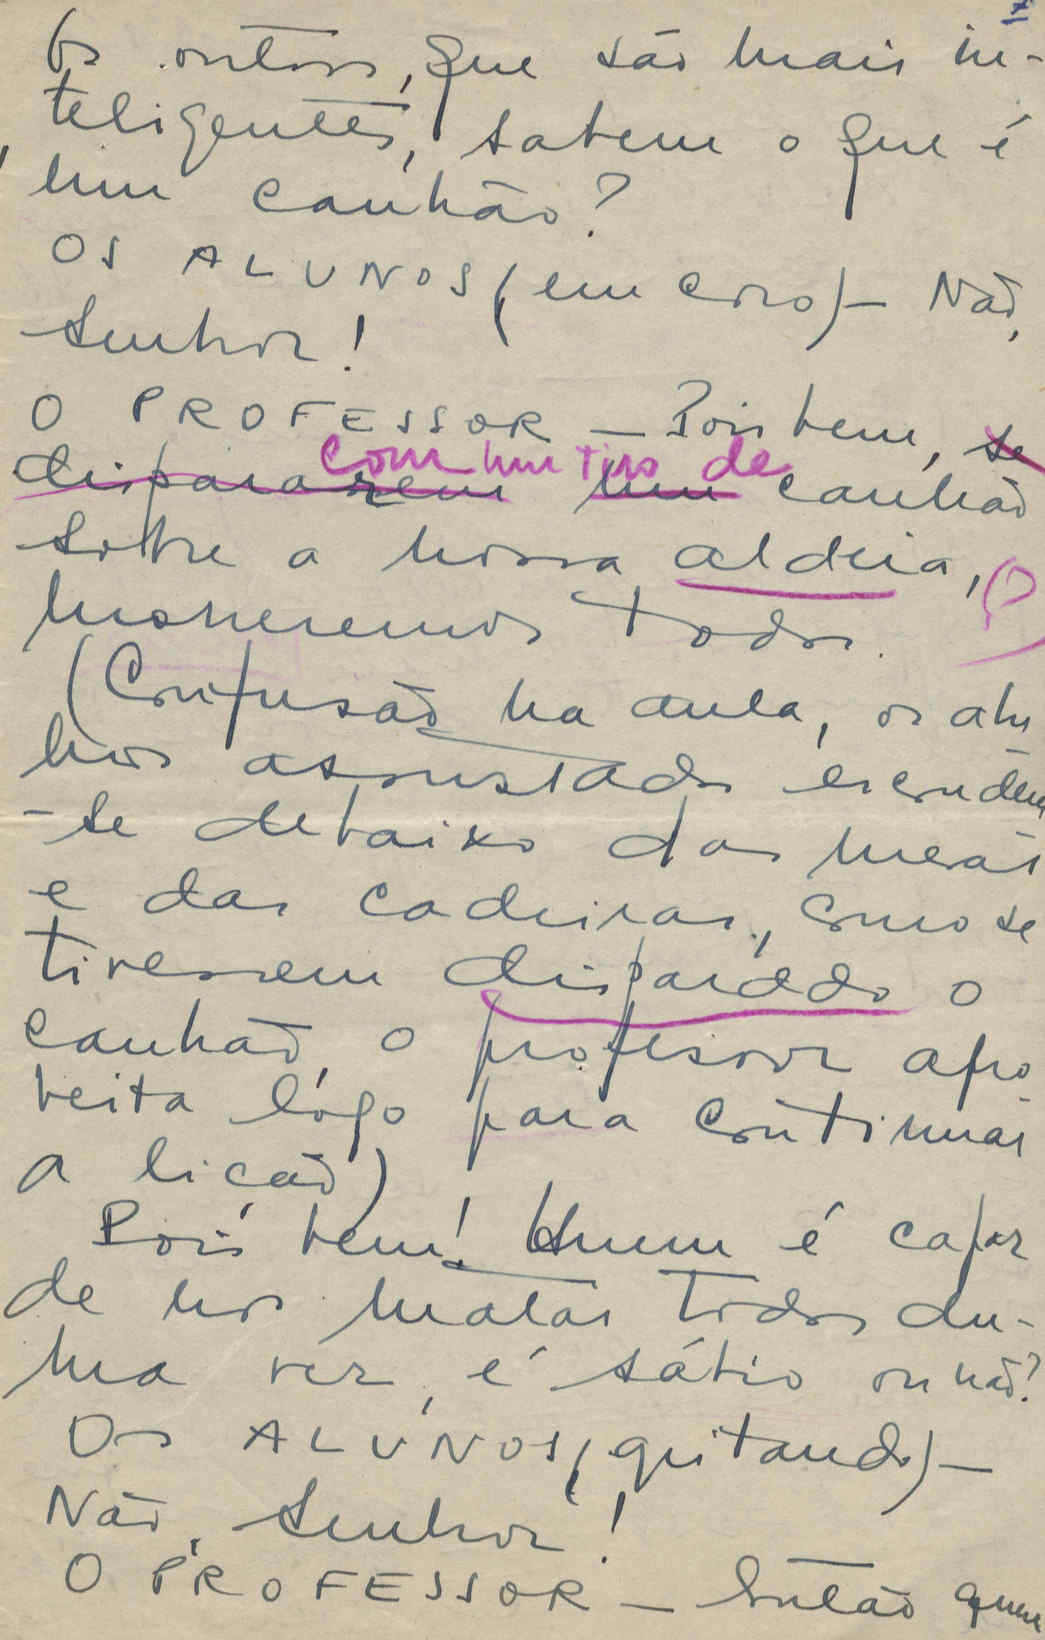 Os outros, que são mais in-
teligentes, sabem o que é
um canhão?
OS ALUNOS (em coro) – Não,
Senhor!
O PROFESSOR – Pois bem, se
com um tiro de
dispararem um canhão
sobre a nossa aldeia,
morreremos todos.
(Confusão na aula, os alu
nos assustados escondem
-se debaixo das mesas
e das cadeiras, como se
tivessem disparado o
canhão, o professor apro
veita lógo para continuar
a lição)
Pois bem! Quem é capaz
de nos matar todos du-
ma vez, é sábio ou não?
Os ALUNOS (gritando) –
Não, Senhor!
O PROFESSOR – Então quem